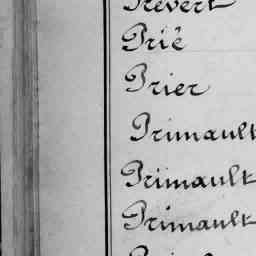 Prévert
Prié
Prier
Primault
Primault
Primault